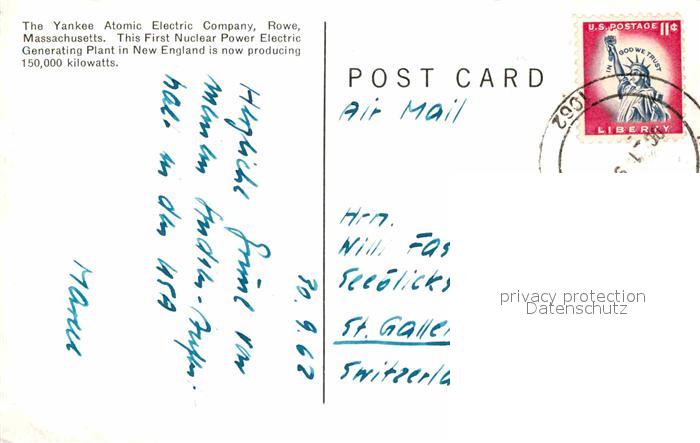 The Yankee Atomic Electric Company, Rowe,
Massachusetts. This First Nuclear Power Electric
Generating Plant in New England is now producing
150,000 kilowatts.
POST CARD
Air Mail
U.S. POSTAGE 11¢
IN GOD WE TRUST
LIBERTY
1962
30.9.62
Herzliche Grüsse von
in den USA
Hrn.
Willi Fas
St. Galle
Switzerla
privacy protection
Datenschutz